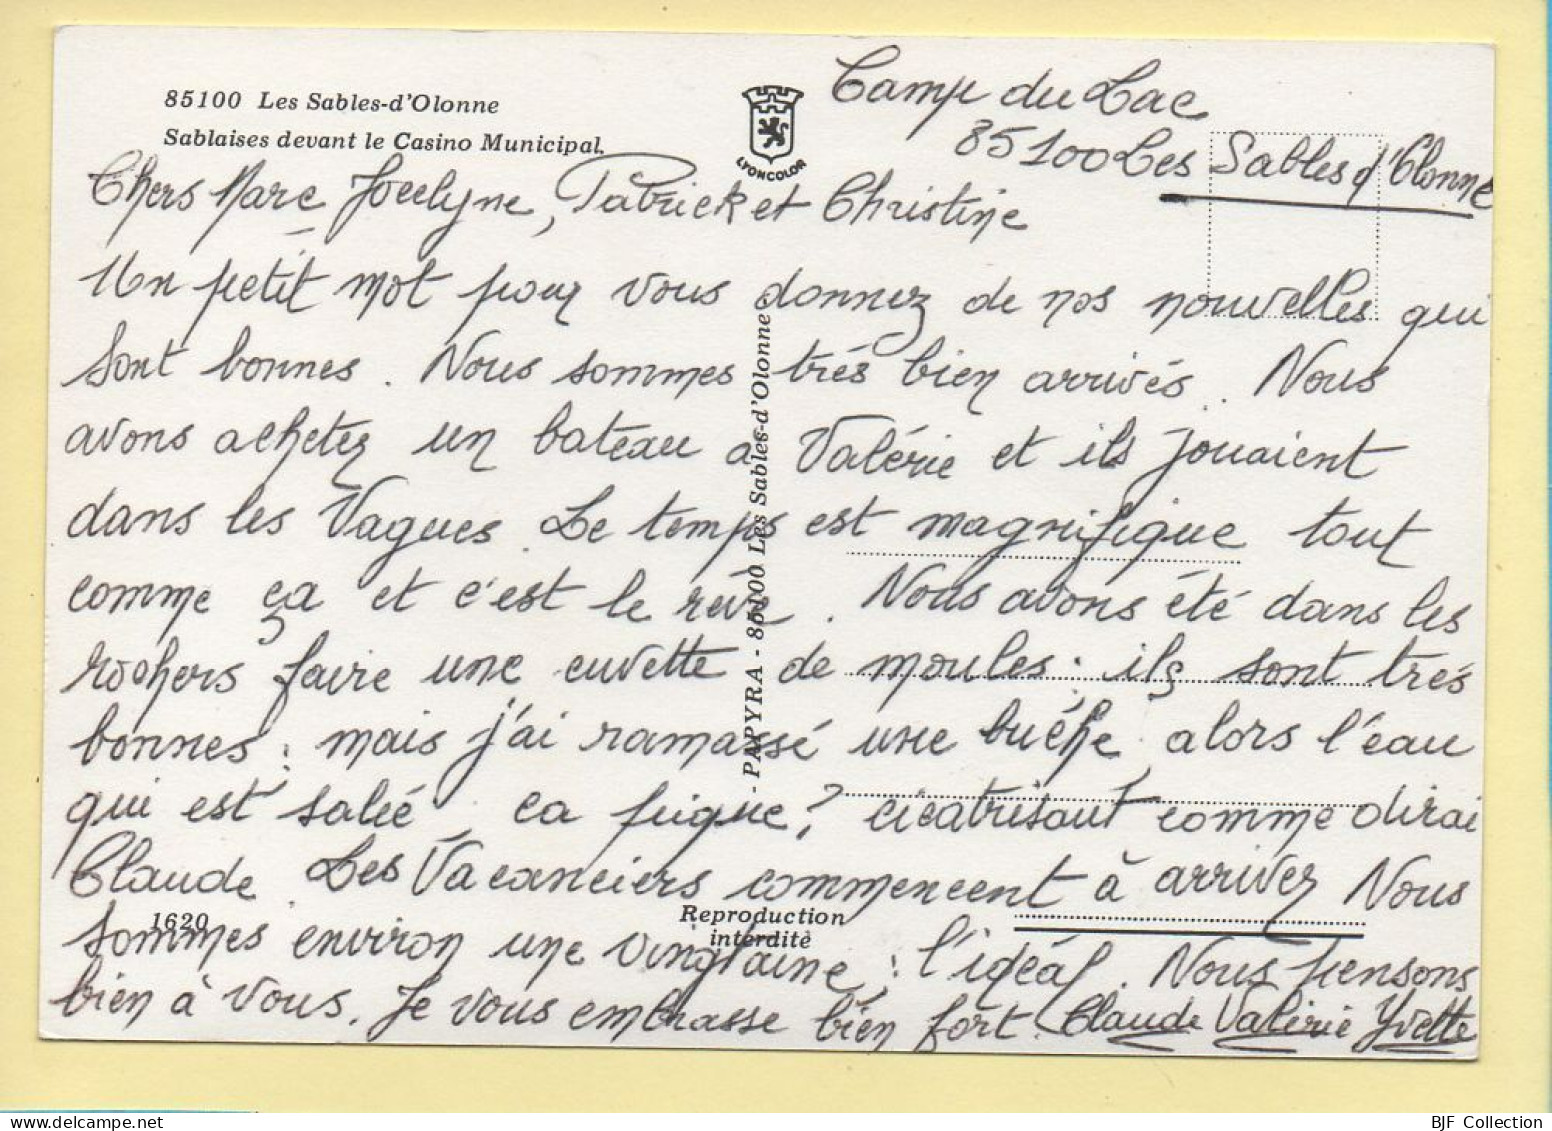 85100 Les Sables-d'Olonne
Sablaises devant le Casino Municipal.
LYONCOLOR
Camp du Lac
85100 Les Sables d'Olonne
Chers Marc Jocelyne, Patrick et Christine
Un petit mot pour vous donnez de nos nouvelles qui
sont bonnes. Nous sommes très bien arrivés. Nous
avons achetez un bateau a Valérie et ils jouaient
dans les Vagues. Le temps est magnifique tout
comme ça et c'est le rêve. Nous avons été dans les
rochers faire une cuvette de moules. ils sont très
bonnes. mais j'ai ramassé une bûche alors l'eau
qui est salée ca pique? cicatrisant comme dirai
Claude. Les Vacanciers commencent à arriver Nous
sommes environ une vingtaine, l'idéal. Nous pensons
bien à vous. Je vous embrasse bien fort. Claude Valérie Yvette
PAPYRA - 85100 Les Sables-d'Olonne
1620
Reproduction
interdite
BJF Collection